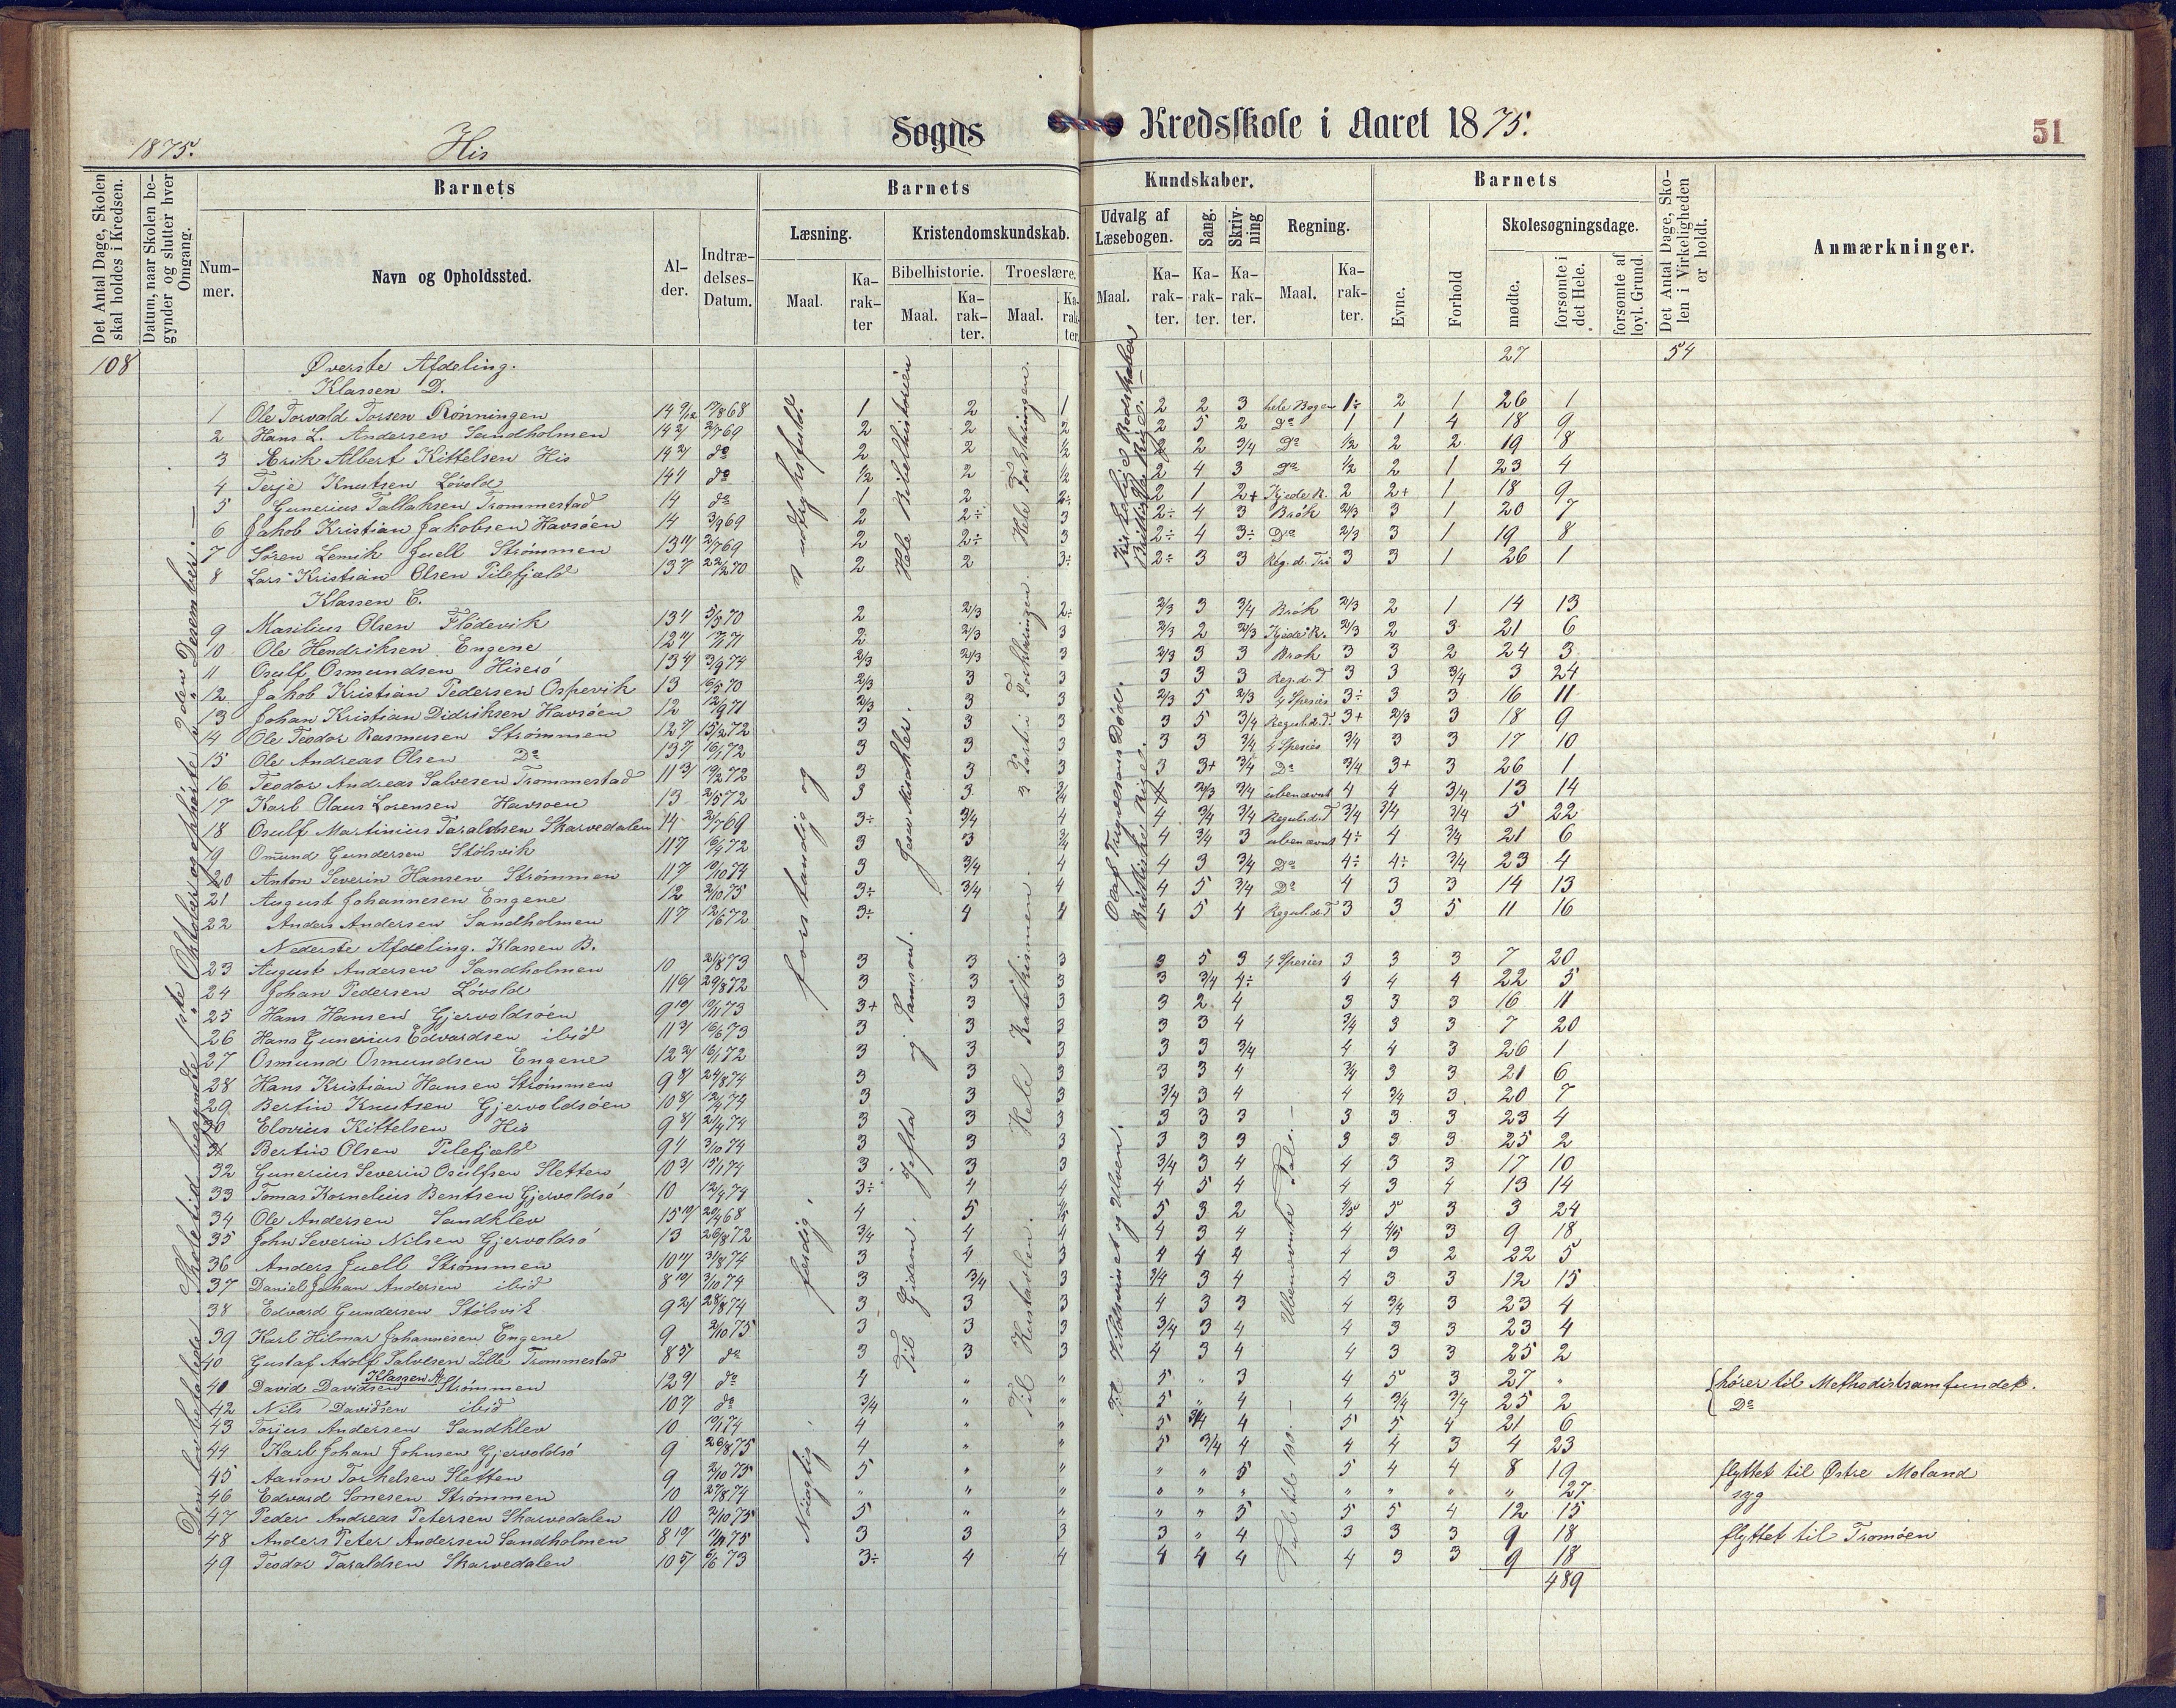 1875. His Sogns Kredsskole i Aaret 1875. 51
Det Antal Dage, Skolen skal holdes i Kredsen.
Datum, naar Skolen begynder og slutter hver Omgang.
Barnets
Num-mer.
Navn og Opholdssted.
Al-der.
Indtræ-delses-Datum.
Barnets Kundskaber.
Læsning.
Maal.
Ka-rak-ter
Kristendomskundskab.
Bibelhistorie.
Maal.
Ka-rak-ter.
Troeslære.
Maal.
Ka-rak-ter.
Udvalg af Læsebogen.
Maal.
Ka-rak-ter.
Sang.
Ka-rak-ter.
Skriv-ning
Ka-rak-ter.
Regning.
Maal.
Ka-rak-ter.
Barnets
Evne.
Forhold
Skolesøgningsdage.
mødte.
forsømte i det Hele.
forsømte af lovl. Grund.
Det Antal Dage, Sko-len i Virkeligheden er holdt.
Anmærkninger.
108 Øverste Afdeling. 27 54
Klassen D.
1 Ole Torvald Torsen Rønningen 1 2 1 2 2 3 hele Bogen 1÷ 2 1 26 1
2 Hans L. Andersen Sandholmen 2 2 2 2 5 2 Do 1 1 4 18 9
3 Erik Albert Kittelsen His do 2 2 1/2 2 2 3/4 Do 1/2 2 2 19 8
4 Terje Knutsen Løvold do 1/2 2 1/2 2 4 3 Do 1/2 2 1 23 4
5 Gunerius Tallaksen Trommestad 14 do 1 2 2÷ 2 1 2+ Kjede R. 2 2+ 1 18 9
6 Jakob Kristian Jakobsen Havsøen 14 3/9 69 2 2÷ 3 2÷ 4 3 Brøk 2/3 3 1 20 7
7 Søren Lemik Juell Strømmen 2 2÷ 3 2÷ 4 3÷ Do 2/3 3 1 19 8
8 Lars Kristian Olsen Pilefjæld 2 2 3÷ 2÷ 3 3 Reg. d. Tri 3 3 1 26 1
Klassen C.
9 Masilius Olsen Flødevik 2 2/3 2÷ 2/3 3 3/4 Brøk 2/3 2 1 14 13
10 Ole Hendriksen Engene 2 2/3 3 2/3 2 2/3 Kjede R. 2/3 2 3 21 6
11 Osulf Osmundsen Hiserö 2/3 2/3 3 2/3 3 3 Brøk 3 3 2 24 3
12 Jakob Kristian Pedersen Ospevik 13 2/3 3 3 3 3 3 Reg. d. T 3 3 3/4 3 24
13 Johan Kristian Didriksen Havsøen 12 2/3 3 3 2/3 5 2/3 4 Spesies 3÷ 3 3 16 11
14 Ole Teodor Rasmusen Strømmen 3 3 3 3 5 3/4 Regul. d. T. 3+ 2/3 3 18 9
15 Ole Andreas Olsen Do 3 3 3 3 3 3/4 4 Spesies 3/4 3 3 17 10
16 Teodor Andreas Salvesen Trommestad 3 3 3 3 3+ 3/4 Do 3/4 3+ 3 26 1
17 Karl Olaus Lorensen Havsoen 13 3 3 3/4 4 2/3 3/4 ubenævnt 4 4 3/4 13 14
18 Osulf Martinius Taraldsen Skarvedalen 14 3÷ 3/4 4 4 3/4 3/4 Regul. d. T 3/4 3/4 3/4 5 22
19 Omund Gundersen Stølsvik 3 3 3/4 4 3/4 3 ubenævnt 4÷ 4 3/4 21 6
20 Anton Severin Hansen Strømmen 3 3/4 4 4 3 3/4 Do 4÷ 4÷ 3/4 23 4
21 August Johannesen Engene 12 2/10 75 3÷ 3/4 4 4 5 3/4 Do 4 3 3 14 13
22 Anders Andersen Sandholmen 3÷ 4 4 4 5 4 Regul. d. T 3 3 5 11 16
Nederste Afdeling. Klassen B.
23 August Andersen Sandholmen 10 3 3 3 3 5 3 4 Spesies 3 3 3 7 20
24 Johan Pedersen Løvold 3 3 3 3 3/4 4÷ 4 4 4 22 5
25 Hans Hansen Gjervoldsøen 3+ 3 3 3 2 4 3 3 3 16 11
26 Hans Gunerius Edvardsen ibid 3 3 3 3 3 4 3/4 3 3 7 20
27 Osmund Osmundsen Engene 3 3 3 3 3 3/4 4 4 3 26 1
28 Hans Kristian Hansen Strømmen 3 3 3 3 3 4 3/4 3 3 21 6
29 Bertin Knutsen Gjervoldsøen 3 3 3 3/4 3 4 4 3/4 3 20 7
30 Elovius Kittelsen His 3 3 3 3 3 3 3 3 3 23 4
31 Bertin Olsen Pilefjæld 3 3 3 3 3 3 3 3 3 25 2
32 Gunerius Severin Osulfsen Sletten 3 3 3 3/4 3 4 4 3 3 17 10
33 Tomas Kornelius Bentsen Gjervoldsö 10 3÷ 4 4 4 5 4 4 3 4 13 14
34 Ole Andersen Sandklev 4 5 4/5 5 3 2 4/5 5 3 3 24
35 John Severin Nilsen Gjervoldsö 13 26/8 72 3/4 4 4 4 3 4 4 4/5 3 9 18
36 Anders Juell Strømmen 3 4 3 4 4 4 4 3 2 22 5
37 Daniel Johan Andersen ibid 3 3/4 3 3/4 3 4 4 3 3 12 15
38 Edvard Gundersen Stølsvik 3 3 3 4 3 3 4 3/4 3 23 4
39 Karl Hilmar Johannesen Engene 9 2/10 75 3 3 3 3/4 3 4 4 3 3 23 4
40 Gustaf Adolf Salvesen Lille Trommestad do 3 3 3 4 3 4 4 3 3 25 2
Klassen A.
40 David Davidsen Strømmen do 4 " " 5 " 3 4 5 3 27 " hører til Methodistsamfundet.
42 Nils Davidsen ibid do 3/4 " " 5 " 4 4 3/4 3/4 25 2 Do
43 Torjus Andersen Sandklev 10 4 " " 5 3/4 4 5 5 4 21 6
44 Karl Johan Johnsen Gjervoldsö 9 26/8 75 4 " " 5 3/4 4 4 4 3 4 23
45 Aanon Torkelsen Sletten 9 2/10 75 5 " " " " 5 5 4 4 8 19 flyttet til Østre Moland
46 Edvard Sonesen Strømmen 10 27/8 74 " " " " " " " " " " 27 syg
47 Peder Andreas Petersen Skarvedalen 10 2/10 75 5 " " " " 5 5 5 4 12 15
48 Anders Peter Andersen Sandholmen 3 3 3 3 " 4 3 3 3 9 18 flyttet til Tromøen
49 Teodor Taraldsen Skarvedalen 3÷ 4 4 4 4 4 4 3 3 9 18
489
Den lovbefalede Skoletid begyndte 1ste Oktober og ophørte 23den Desember. —
Nöiagtig, færdig, forstandig og udtryksfuld
Hele Bibelhistorien
Til Gideon. Jefta og Samson. Jesu mirakler.
Hele Forklaringen.
3 Parti i Forklaringen.
Til Hustavlen. Hele Katekismen.
Olaf Trygvesøns Død. Kristelige Rige.
Ubenævnte Tale. —
Tale til 100. —